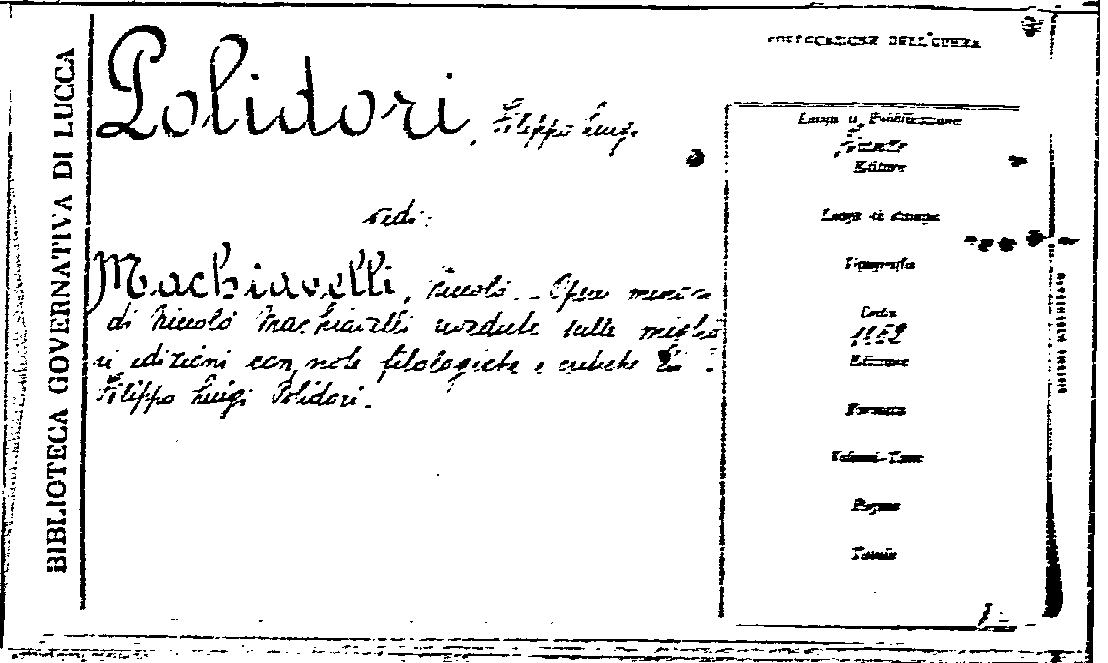 BIBLIOTECA GOVERNATIVA DI LUCCA
Polidori, Filippo Luigi
vedi:
Machiavelli, Niccolò. - Opere minori
di Niccolò Machiavelli rivedute sulle miglio
ri edizioni con note filologiche e critiche di
Filippo Luigi Polidori.
COLLOCAZIONE DELL'OPERA
Luogo di Pubblicazione
Firenze
Editore
Luogo di stampa
Tipografia
Data
1852
Edizione
Formato
Volumi-Tomi
Pagine
Tavole